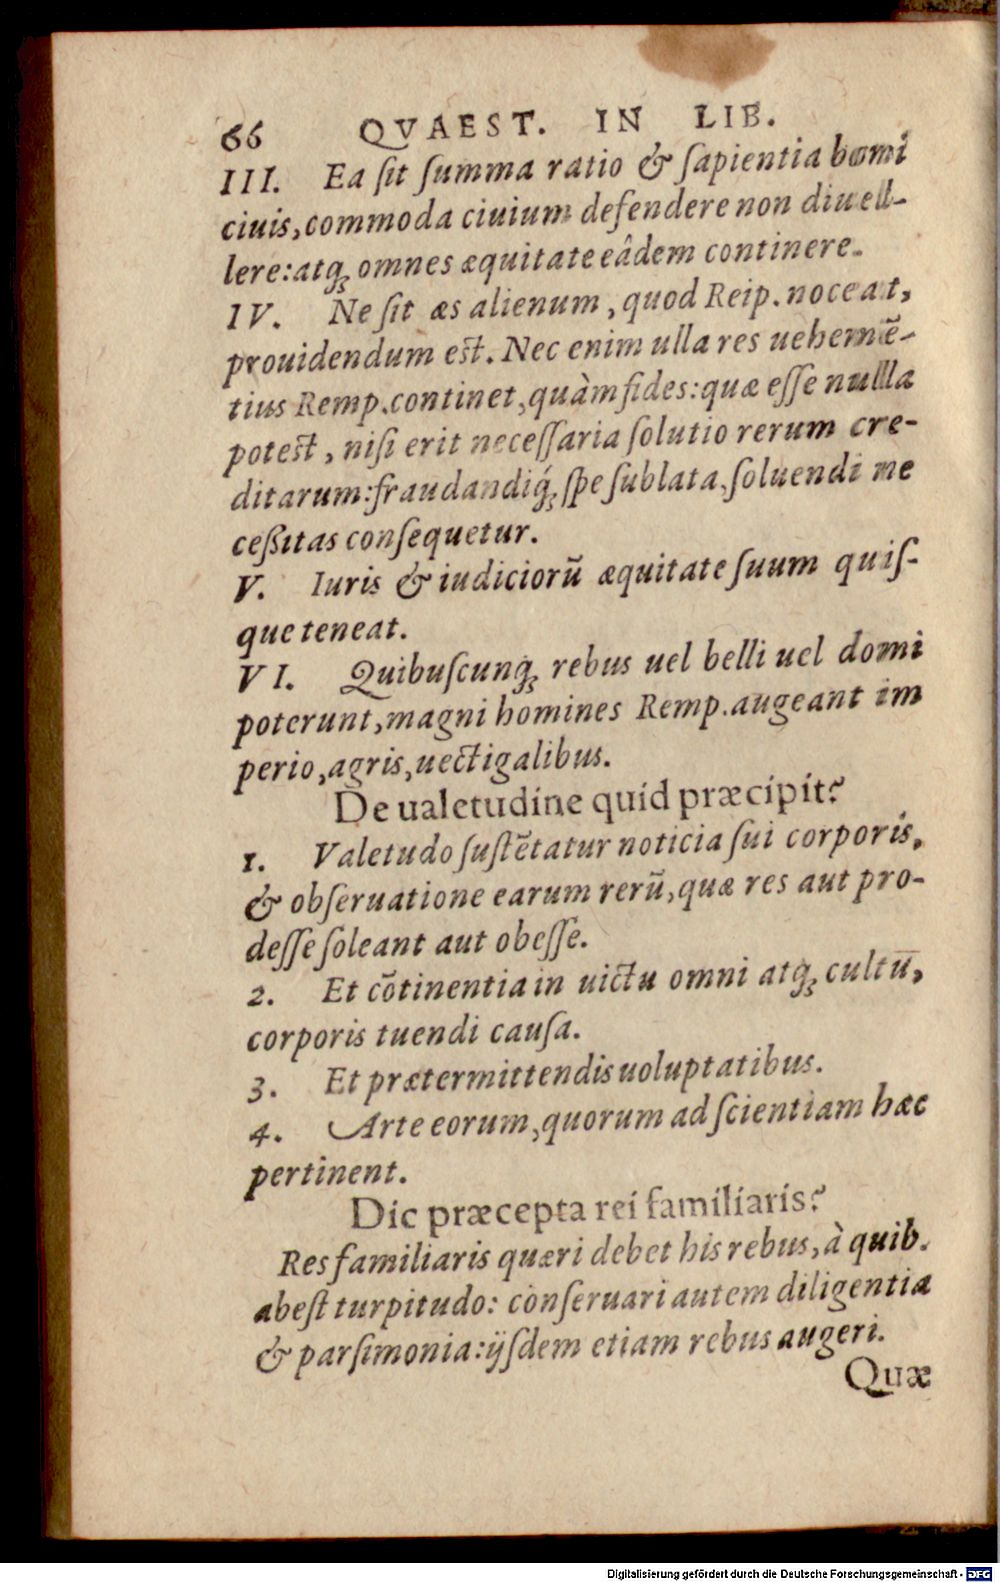 66 QVAEST. IN LIB.
III. Ea ſit ſumma ratio & ſapientia boni
ciuis, commoda ciuium defendere non diuel-
lere: atq́ꝫ omnes æquitate eâdem continere.
IV. Ne ſit æs alienum, quod Reip. noceat,
prouidendum eſt. Nec enim ulla res uehemē-
tius Remp. continet, quàm fides: quæ eſſe nulla
poteſt, niſi erit neceſſaria ſolutio rerum cre-
ditarum: fraudandiq́ꝫ ſpe ſublata, ſoluendi ne
ceßitas conſequetur.
V. Iuris & iudiciorū æquitate ſuum quiſ-
que teneat.
VI. Quibuſcunq́ꝫ rebus uel belli uel domi
poterunt, magni homines Remp. augeant im
perio, agris, uectigalibus.
De ualetudine quid præcipit?
1. Valetudo ſuſtētatur noticia ſui corporis,
& obſeruatione earum rerū, quæ res aut pro-
deſſe ſoleant aut obeſſe.
2. Et cōtinentia in uictu omni atq́ꝫ cultū,
corporis tuendi cauſa.
3. Et prætermittendis uoluptatibus.
4. Arte eorum, quorum ad ſcientiam hæc
pertinent.
Dic præcepta rei familiaris?
Res familiaris quæri debet his rebus, à quib.
abeſt turpitudo: conſeruari autem diligentia
& parſimonia: ijſdem etiam rebus augeri.
Quæ
Digitalisierung gefördert durch die Deutsche Forschungsgemeinschaft - DFG